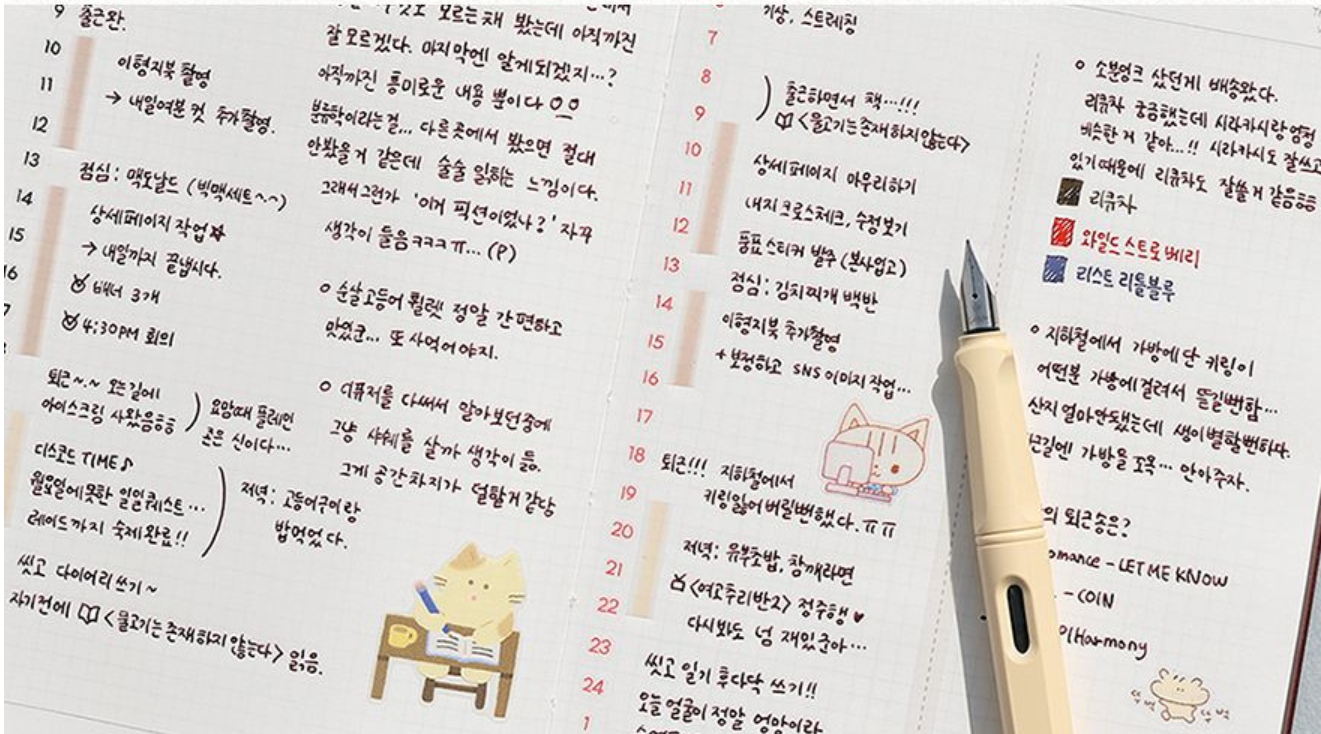 9
출근완.
10
이형지북 촬영
11
→ 내일여분 컷 추가촬영.
12
13
점심: 맥도날드 (빅맥세트~~)
14
상세페이지 작업
15
→ 내일까지 끝냅시다.
16
배너 3개
4:30PM 회의
퇴근~.~ 오는길에
아이스크림 사왔음ㅎㅎ
요맘때 플레인
존은 신이다...
디스코드 TIME♪
월요일에못한 일일퀘스트...
레이드까지 숙제완료!!
저녁: 고등어구이랑
밥먹었다.
씻고 다이어리쓰기~
자기전에 <물고기는존재하지않는다> 읽음.
모르는채 봤는데 아직까진
잘모르겠다. 마지막엔 알게되겠지...?
아직까진 흥미로운 내용 뿐이다
분류학이라는걸... 다른곳에서 봤으면 절대
안봤을거 같은데 술술 읽히는 느낌이다.
그래서그런가 '이거 픽션이었나?' 자꾸
생각이 들음ㅋㅋㅋㅠ... (P)
순살고등어 휠렛 정말 간편하고
맛있군... 또사먹어야지.
디퓨저를 다써서 알아보던중에
그냥 사쉐를 살까 생각이 듬.
그게 공간차지가 덜할거같당
기상, 스트레칭
7
8
출근하면서 책...!!!
9
<물고기는존재하지않는다>
10
상세페이지 마무리하기
11
내지크로스체크, 수정보기
12
풍표스티커 발주 (본사업고)
13
점심: 김치찌개 백반
14
이형지북 추가촬영
15
+ 보정하고 SNS이미지작업...
16
17
18
퇴근!!! 지하철에서
키링잃어버릴뻔했다.ㅠㅠ
19
20
저녁: 유부초밥, 참깨라면
21
<여고추리반2> 정주행♥
22
다시봐도 넘 재밌쥰아...
23
씻고 일기 후다닥 쓰기!!
24
오늘얼굴이정말 엉망이라
1
소분잉크 샀던게 배송왔다.
리큐차 궁금했는데 시라카시랑엄청
비슷한거 같아...!! 시라카시도 잘쓰고
있기때문에 리큐차도 잘쓸거같음ㅎㅎ
리큐차
와일드스트로베리
리스트리틀블루
지하철에서 가방에단 키링이
어떤분 가방에걸려서 뜯길뻔함...
산지얼마안됐는데 생이별할뻔하다.
근길엔 가방을 꼬옥... 안아주자.
의 퇴근송은?
omance - LET ME KNOW
- COIN
Harmony